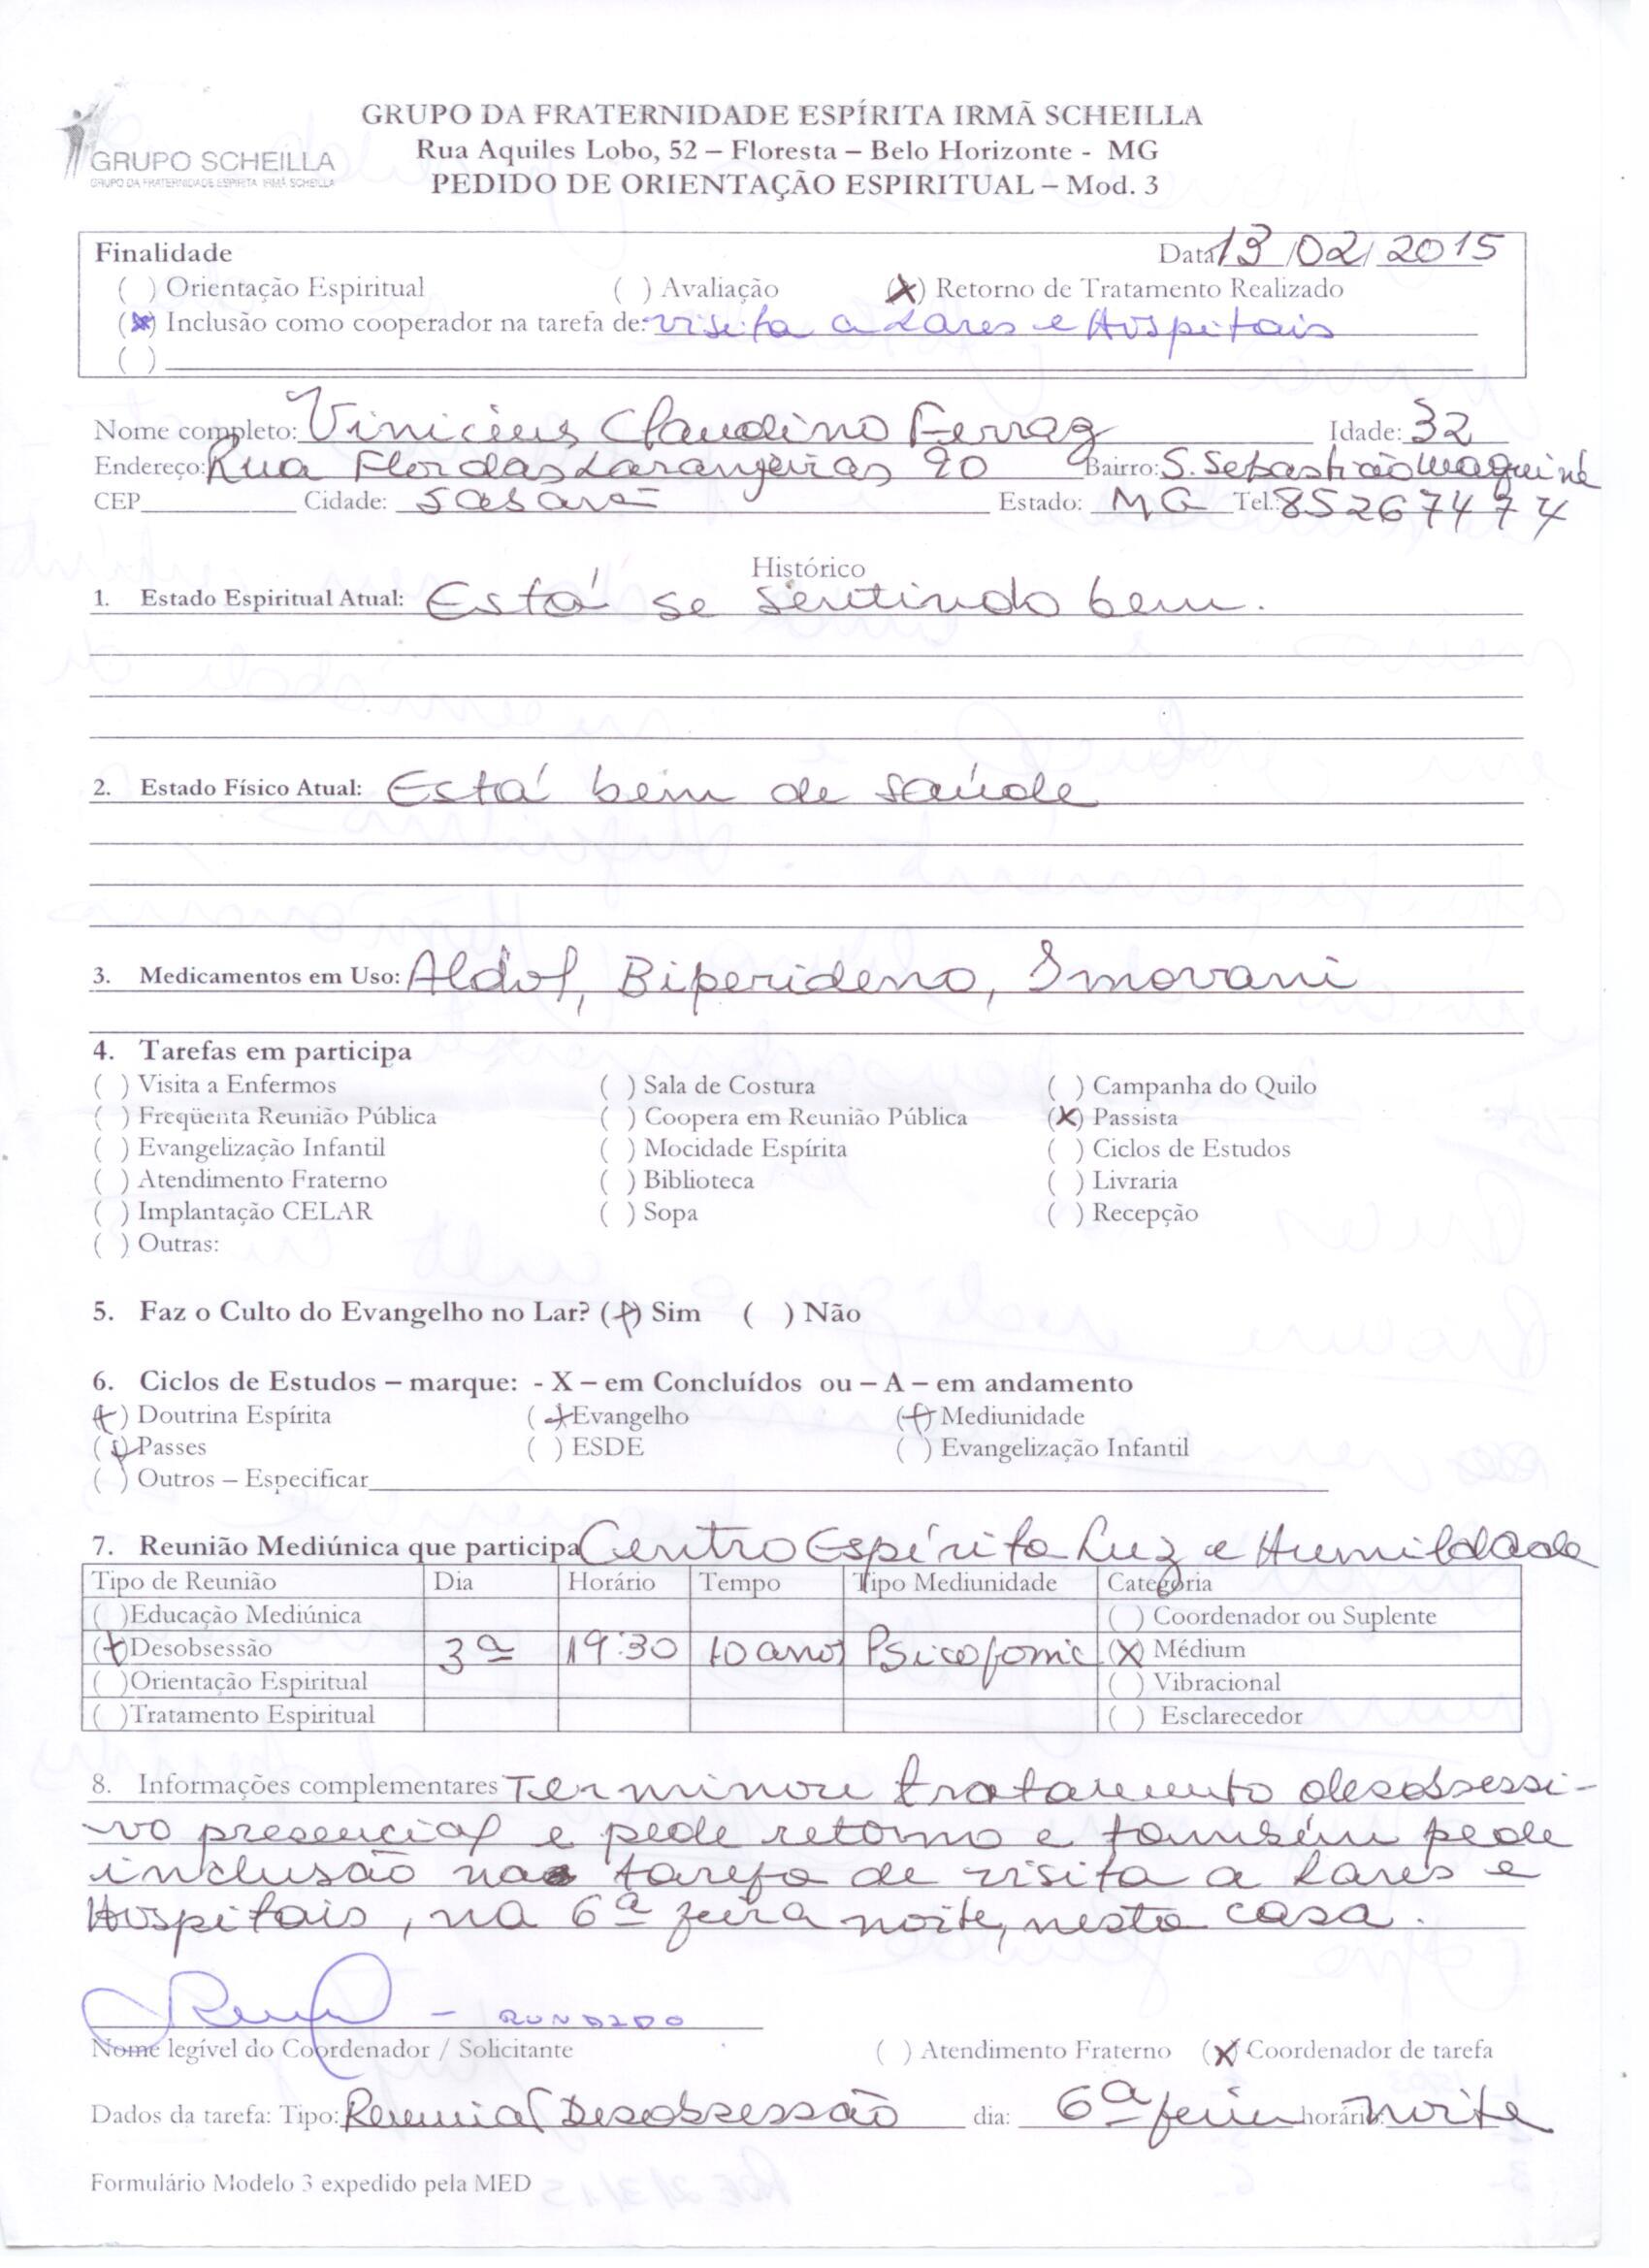 GRUPO SCHEILLA
GRUPO DA FRATERNIDADE ESPÍRITA IRMÃ SCHEILLA
GRUPO DA FRATERNIDADE ESPÍRITA IRMÃ SCHEILLA
Rua Aquiles Lobo, 52 – Floresta – Belo Horizonte - MG
PEDIDO DE ORIENTAÇÃO ESPIRITUAL – Mod. 3
Finalidade Data 13/02/2015
( ) Orientação Espiritual ( ) Avaliação (X) Retorno de Tratamento Realizado
(X) Inclusão como cooperador na tarefa de: visita a Lares e Hospitais
( )
Nome completo: Vinicius Claudino Ferraz Idade: 32
Endereço: Rua Flor das Laranjeiras 90 Bairro: S. Sebastião Maquiné
CEP Cidade: Estado: MG Tel.: 85267474
Histórico
1. Estado Espiritual Atual: Está se sentindo bem.
2. Estado Físico Atual: Está bem de saúde
3. Medicamentos em Uso: Aldol, Biperideno, Imovani
4. Tarefas em participa
( ) Visita a Enfermos ( ) Sala de Costura ( ) Campanha do Quilo
( ) Freqüenta Reunião Pública ( ) Coopera em Reunião Pública (X) Passista
( ) Evangelização Infantil ( ) Mocidade Espírita ( ) Ciclos de Estudos
( ) Atendimento Fraterno ( ) Biblioteca ( ) Livraria
( ) Implantação CELAR ( ) Sopa ( ) Recepção
( ) Outras:
5. Faz o Culto do Evangelho no Lar? (X) Sim ( ) Não
6. Ciclos de Estudos – marque: - X – em Concluídos ou – A – em andamento
(X) Doutrina Espírita (X) Evangelho (X) Mediunidade
(X) Passes ( ) ESDE ( ) Evangelização Infantil
( ) Outros – Especificar
7. Reunião Mediúnica que participa Centro Espírita Luz e Humildade
Tipo de Reunião Dia Horário Tempo Tipo Mediunidade Categoria
( )Educação Mediúnica ( ) Coordenador ou Suplente
(X)Desobsessão 3ª 19:30 10 anos Psicofonic (X) Médium
( )Orientação Espiritual ( ) Vibracional
( )Tratamento Espiritual ( ) Esclarecedor
8. Informações complementares Terminou tratamento desobsessi-
vo presencial e pede retorno e também pede
inclusão na tarefa de visita a Lares e
Hospitais, na 6ª feira noite, nesta casa.
Nome legível do Coordenador / Solicitante ( ) Atendimento Fraterno (X) Coordenador de tarefa
Dados da tarefa: Tipo: Reunião Desobsessão dia: 6ª feira horário: noite
Formulário Modelo 3 expedido pela MED